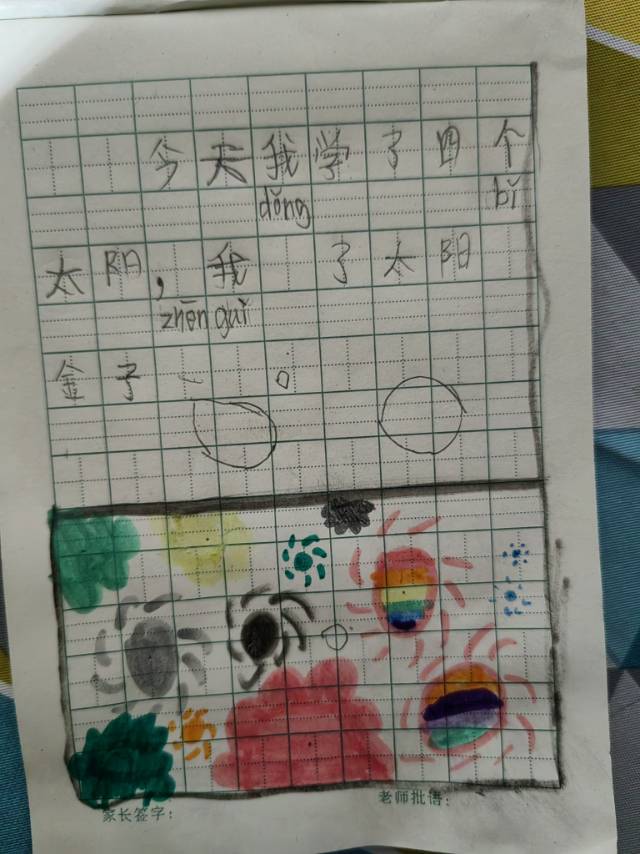 今天我学了四个
dǒng bǐ
太阳，我 了太阳
zhēn guì
金子 。
家长签字： 老师批语：